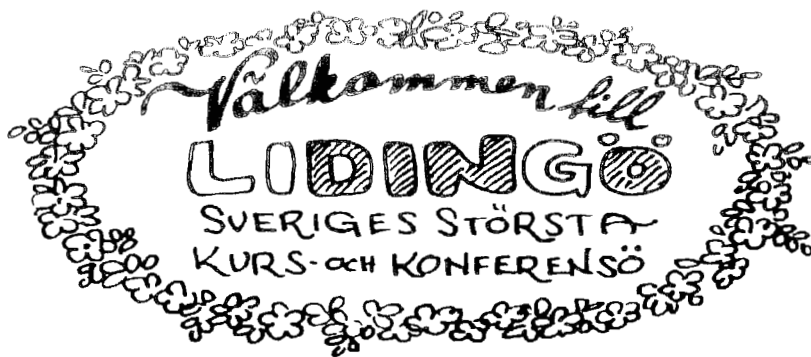 Välkommen till
LIDINGÖ
SVERIGES STÖRSTA
KURS- OCH KONFERENSÖ